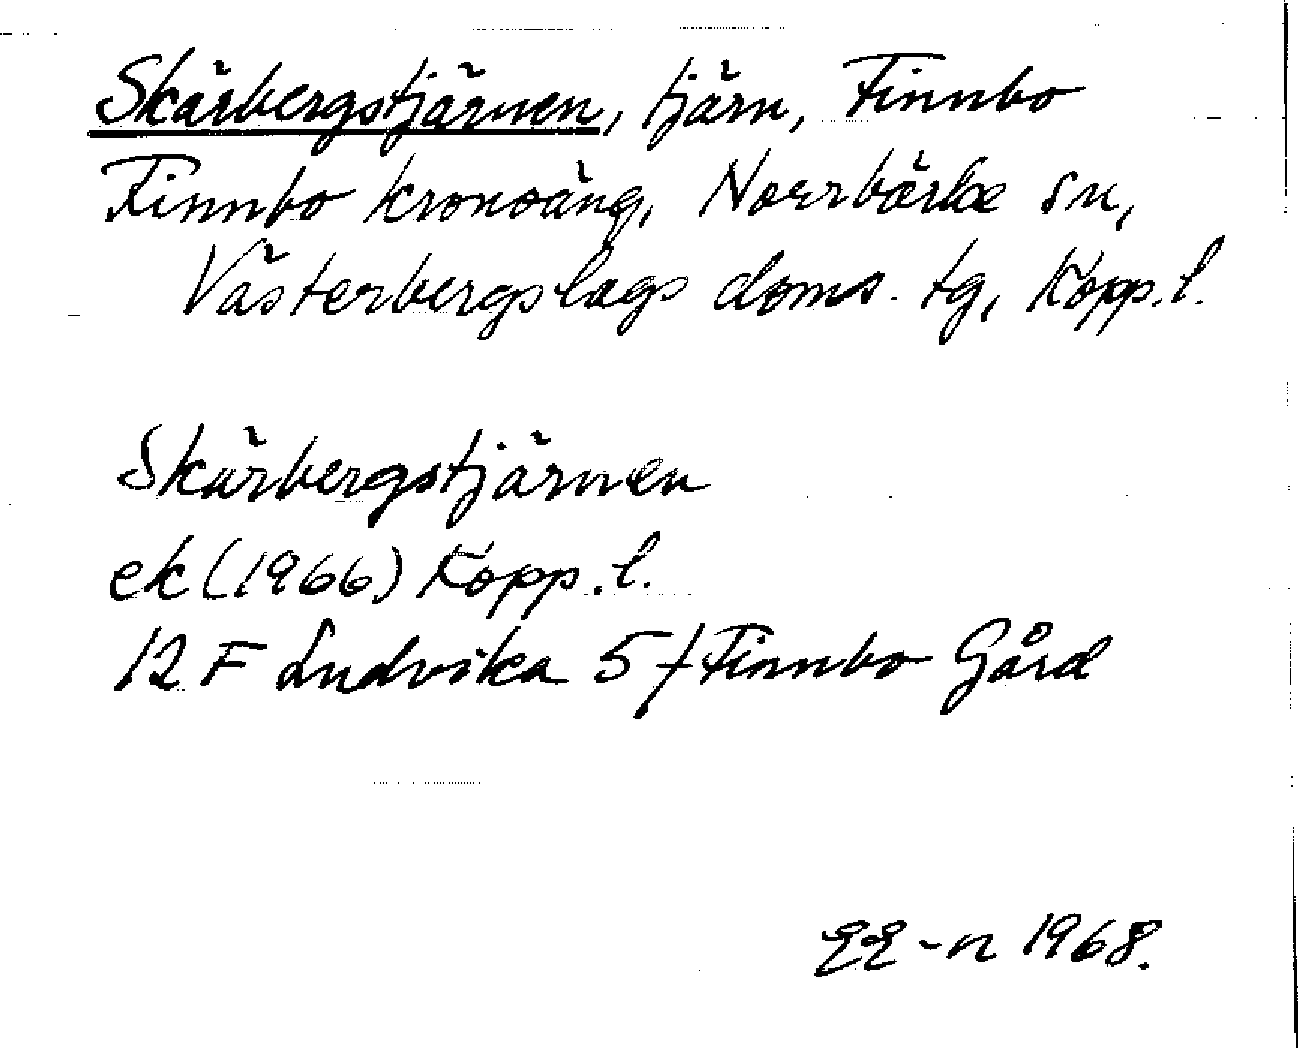 Skärbergstjärnen, tjärn, Finnbo
Finnbo kronoäng, Norrbärke sn,
Västerbergslags doms. tg, Kopp. l.
Skärbergstjärnen
ek (1966) Kopp. l.
12 F Ludvika 5 f Finnbo Gård
EE-n 1968.